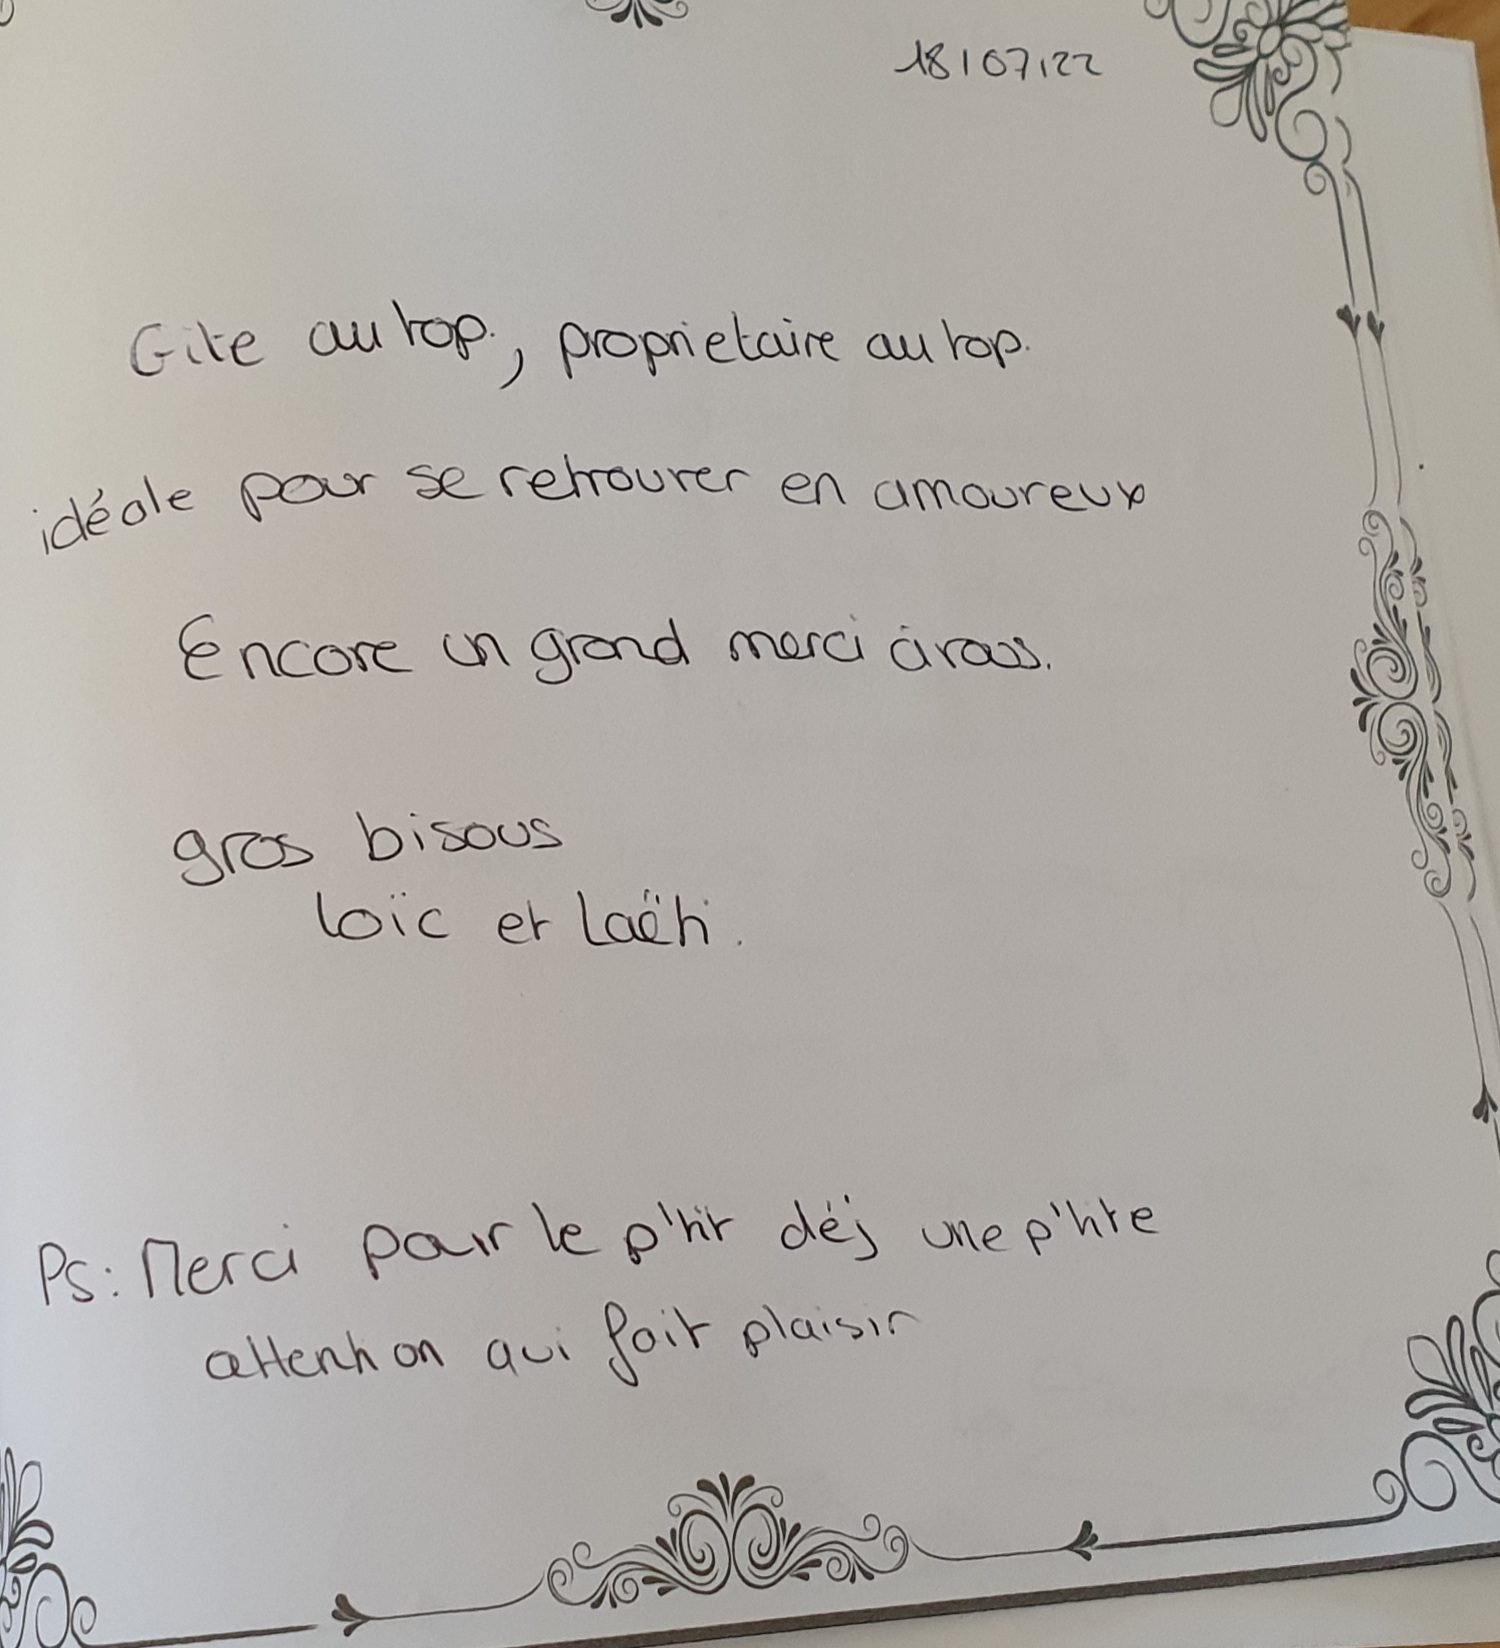 18/07/22
Gite au top, proprietaire au top.
idéale pour se retrouver en amoureux
Encore un grand merci à vous.
gros bisous
Loïc et Laëti.
Ps: Merci pour le p'tit déj une p'tite
attention qui fait plaisir